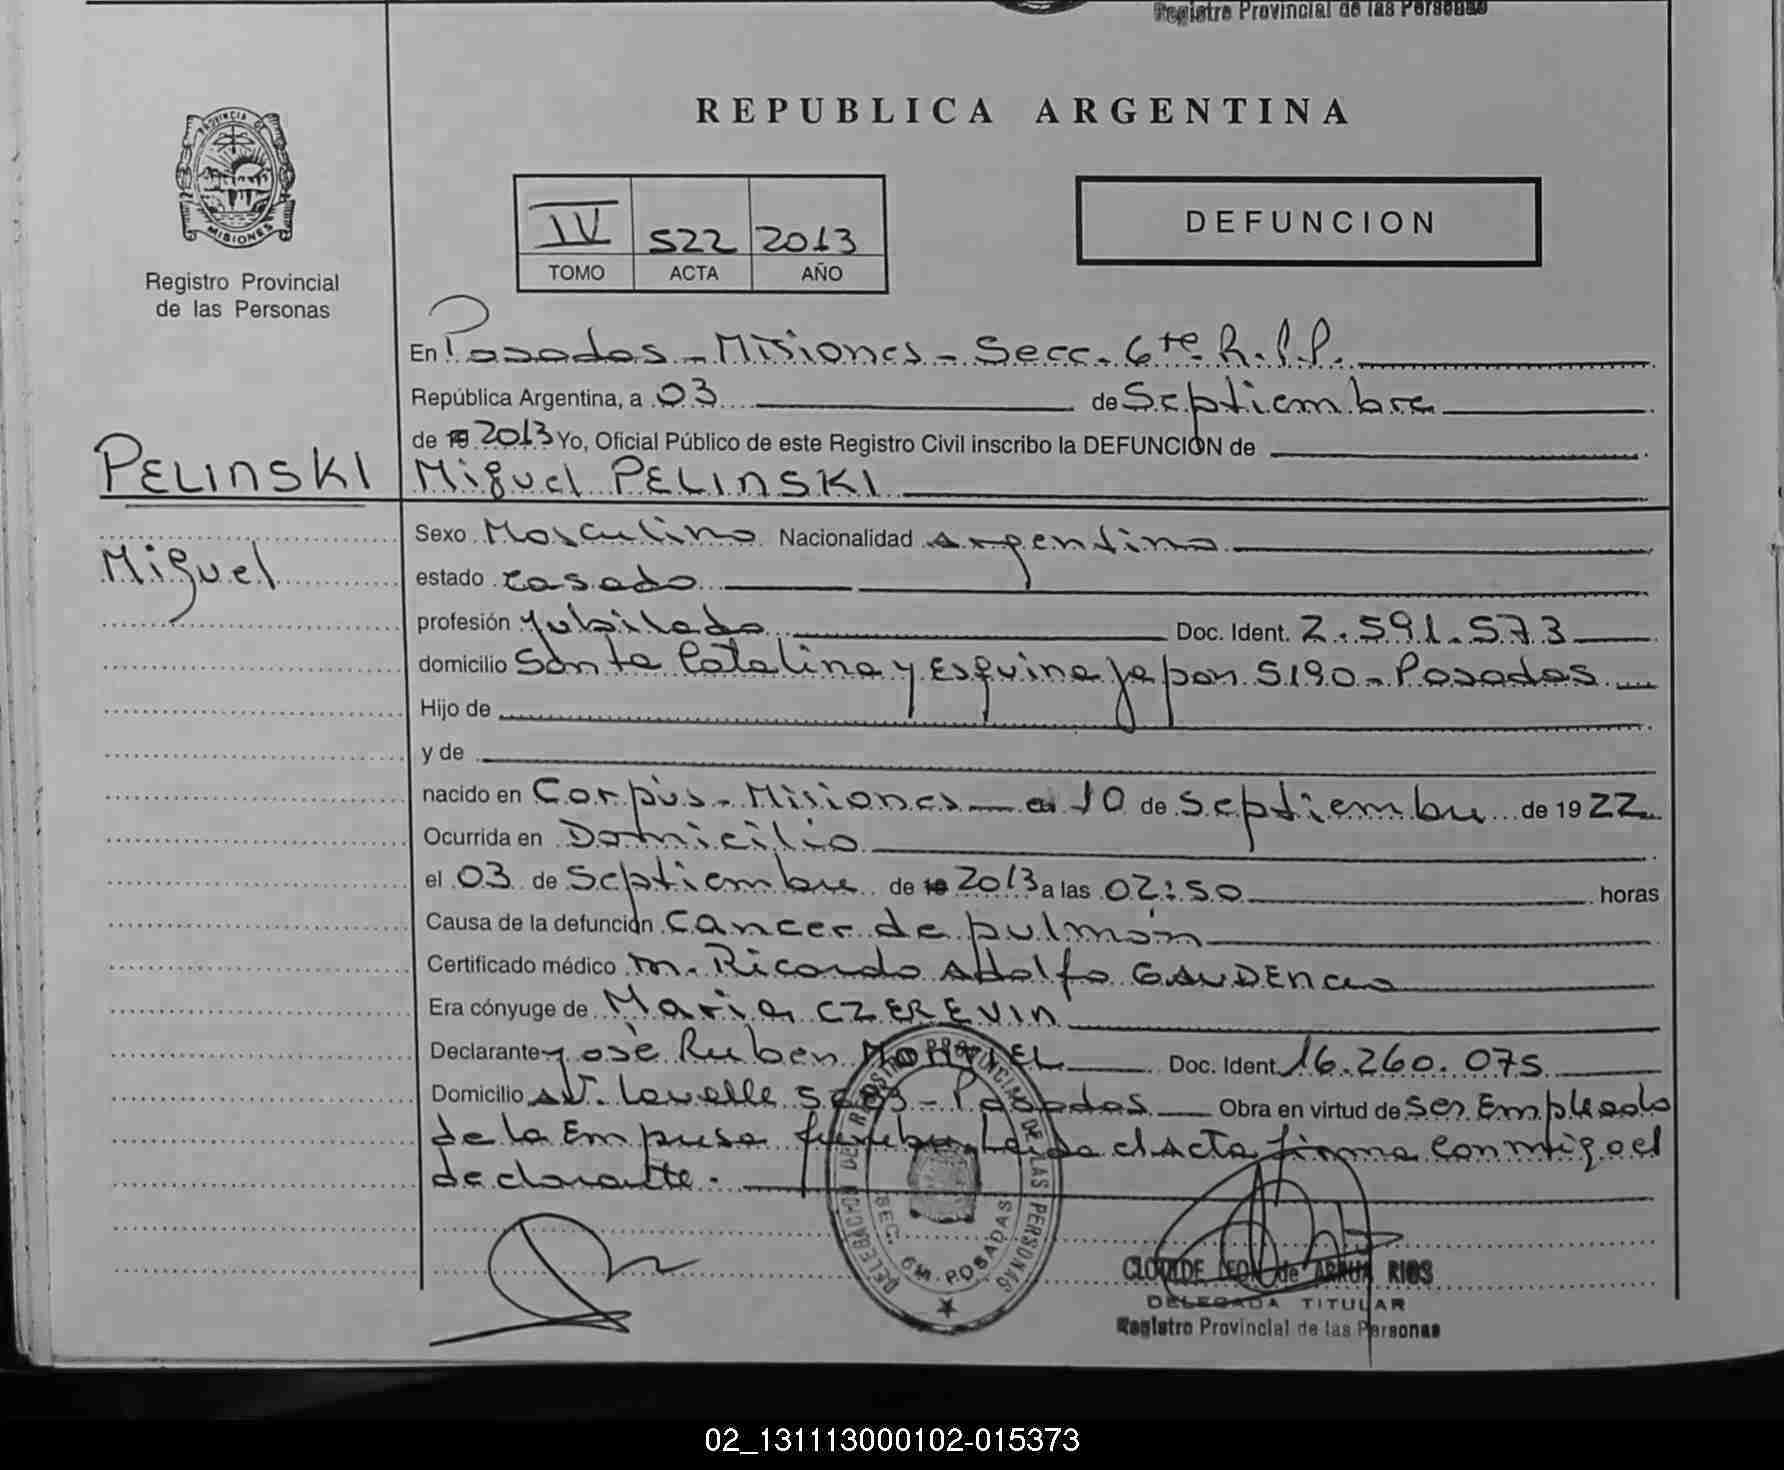 Registro Provincial de las Personas
REPUBLICA ARGENTINA
PROVINCIA DE
MISIONES
Registro Provincial
de las Personas
IV 522 2013
TOMO ACTA AÑO
DEFUNCION
En Posadas - Misiones - Secc. 6ta. R.P.P.
República Argentina, a 03 de Septiembre
de 19 2013 Yo, Oficial Público de este Registro Civil inscribo la DEFUNCION de
PELINSKI
Miguel
Miguel PELINSKI
Sexo Masculino Nacionalidad Argentino
estado casado
profesión Jubilado Doc. Ident. 2.591.573
domicilio Santa Catalina y Esquina Japon 5190 - Posadas
Hijo de
y de
nacido en Corpus - Misiones el 10 de Septiembre de 1922
Ocurrida en Domicilio
el 03 de Septiembre de 19 2013 a las 02:50 horas
Causa de la defunción cancer de pulmón
Certificado médico M. Ricardo Adolfo GAUDENCIO
Era cónyuge de Maria CZEREVIN
Declarante José Ruben MONTIEL Doc. Ident. 16.260.075
Domicilio Av. Lavalle - Posadas Obra en virtud de ser Empleado
de la Empresa funebre Leida el Acta firma conmigo el
declarante.
DELEGACION DE REGISTRO PROVINCIAL DE LAS PERSONAS
SEC. 6ta. POSADAS
CLOTILDE LEON de ARRUA RIOS
DELEGADA TITULAR
Registro Provincial de las Personas
02_131113000102-015373